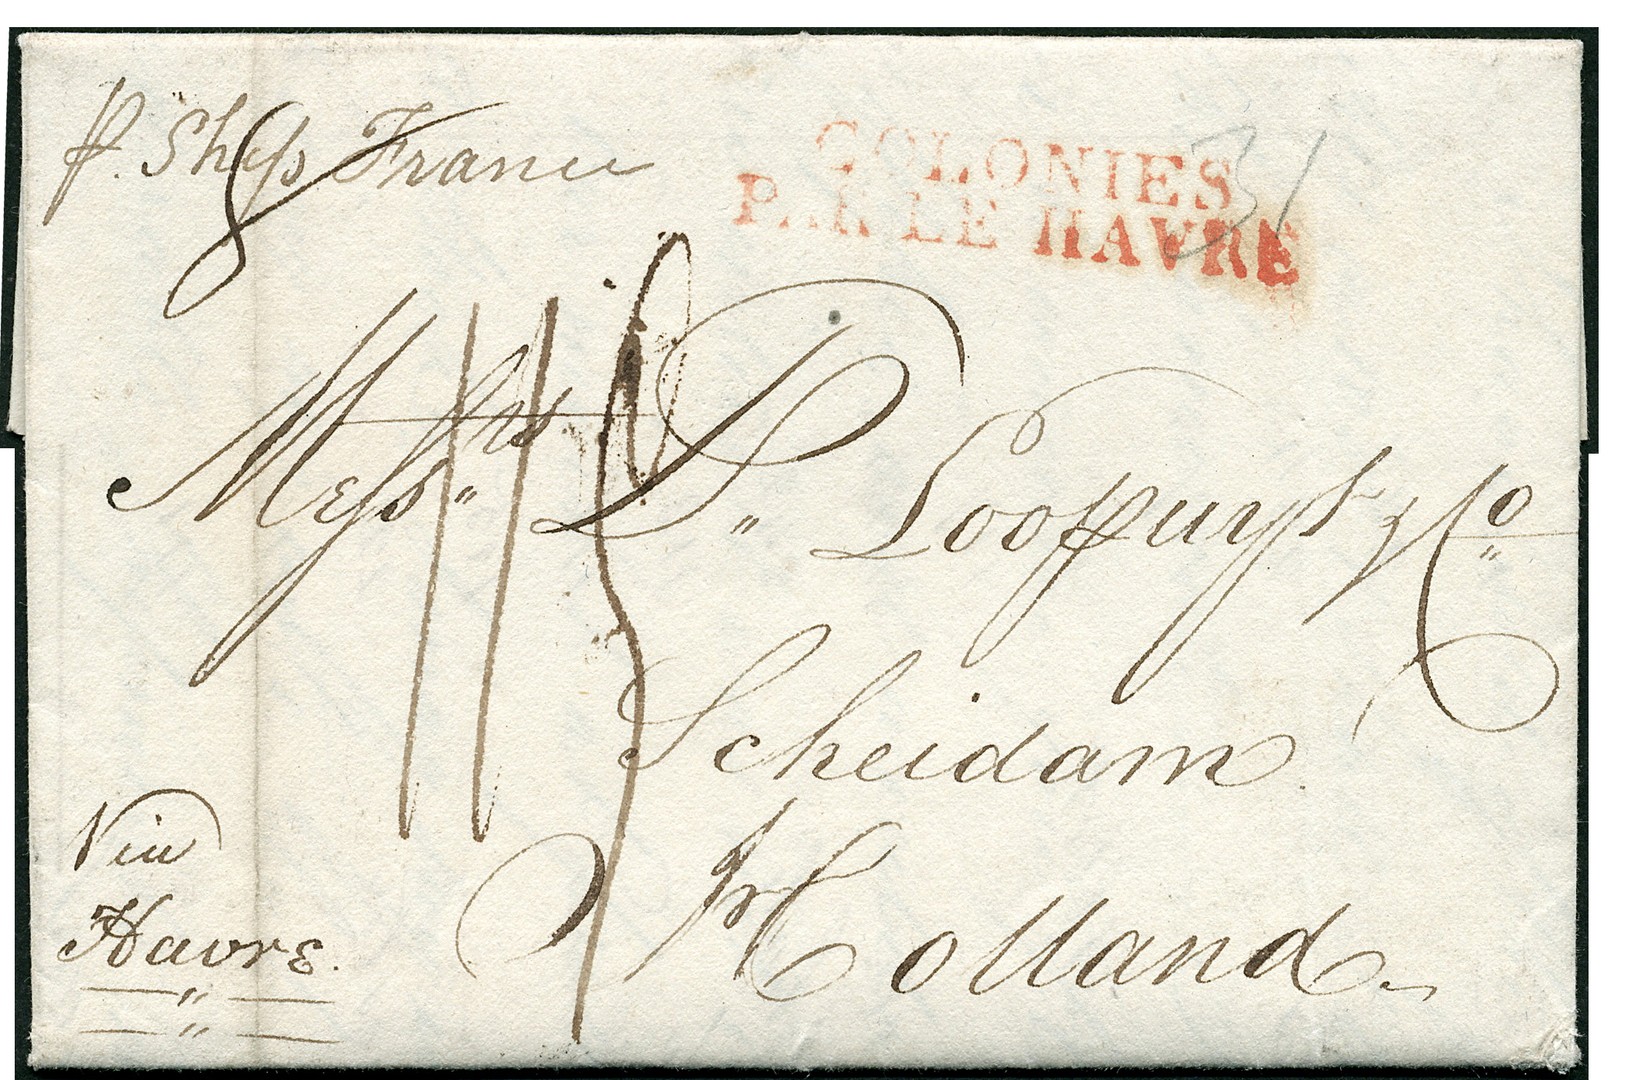 p. Ship France
8
COLONIES
PAR LE HAVRE
31
Messrs D. Loopuyt & Co
Scheidam
Holland
Via
Havre.